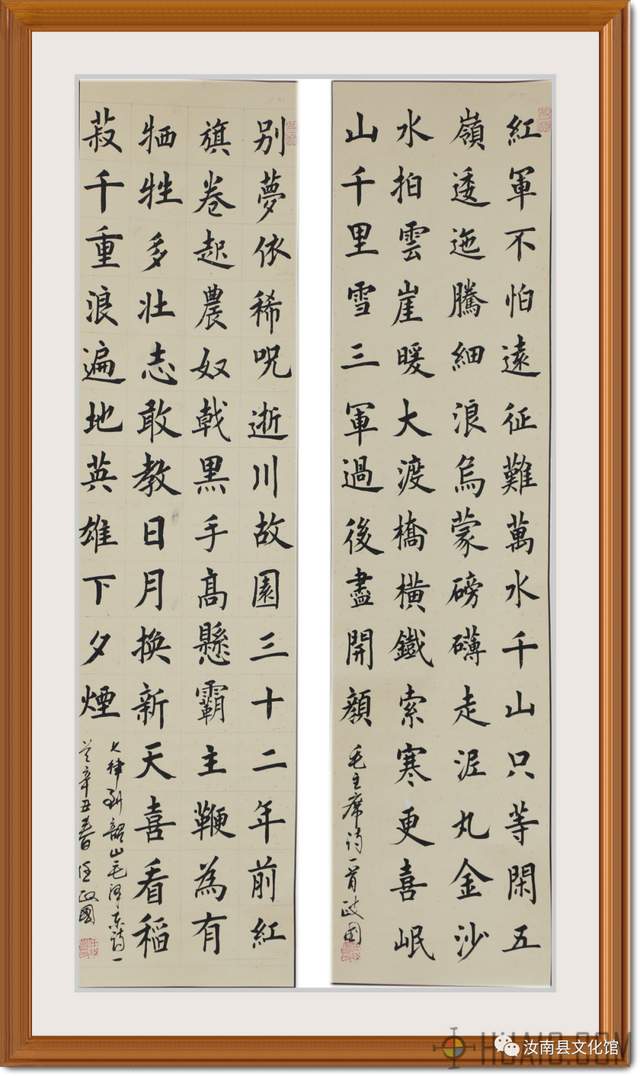 紅軍不怕遠征難萬水千山只等閑五
嶺逶迤騰細浪烏蒙磅礴走泥丸金沙
水拍雲崖暖大渡橋橫鐵索寒更喜岷
山千里雪三軍過後盡開顏
毛主席诗一首政國
别夢依稀呪逝川故園三十二年前紅
旗卷起農奴戟黑手高懸霸主鞭為有
牺牲多壯志敢教日月換新天喜看稻
菽千重浪遍地英雄下夕煙
七律到韶山毛澤東诗一
首辛丑春汪政國
汝南县文化馆
HUAIC.COM